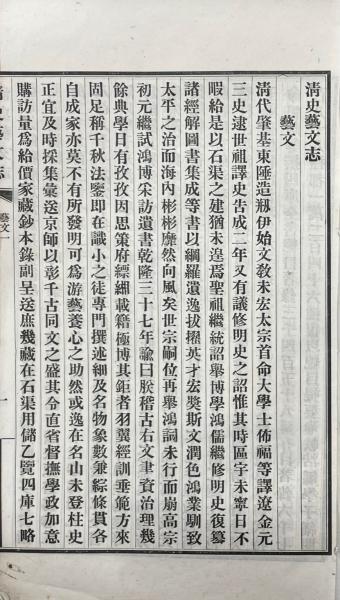 清史藝文志
藝文
清代肇基東陲造物伊始文敎未宏太宗首命大學士希福等譯遼金元
三史逮世祖譯史吿成二年又有議修明史之詔惟其時區宇未寧日不
暇給是以石渠之建猶未遑焉聖祖繼統詔舉博學鴻儒繼修明史復纂
諸經解圖書集成等書以網羅遺逸拔擢英才宏奬斯文潤色鴻業馴致
太平之治而海內彬彬靡然向風矣世宗嗣位再舉鴻詞未行而崩高宗
初元繼試鴻博采訪遺書乾隆三十七年諭曰朕稽古右文聿資治理幾
餘典學日有孜孜因思策府縹緗載籍極博其鉅者羽翼經訓垂範方來
固足稱千秋法鑒卽在識小之徒專門撰述細及名物象數兼綜條貫各
自成家亦莫不有所發明可爲游藝養心之助然或逸在名山未登柱史
正宜及時採集彙送京師以彰千古同文之盛其令直省督撫學政加意
購訪量爲給價家藏鈔本錄副呈送庶幾藏在石渠用儲乙覽四庫七略
清史藝文志
藝文一
一